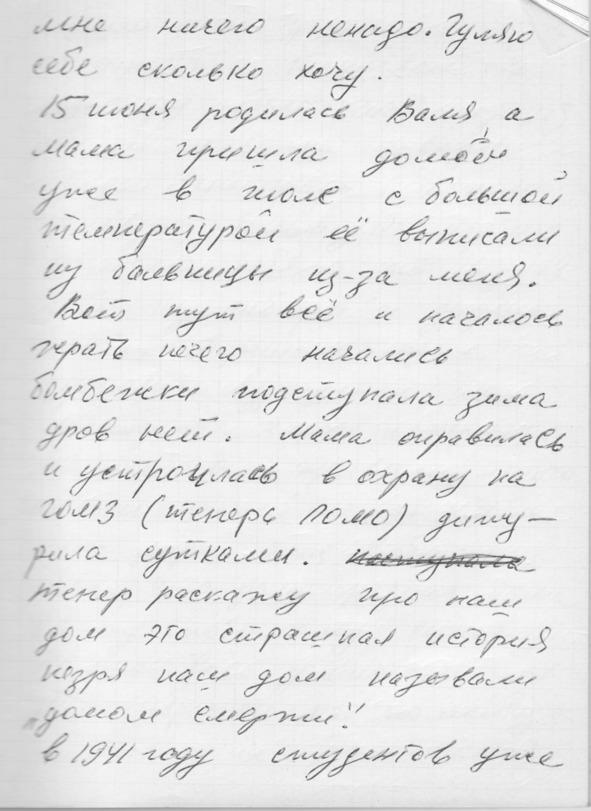 мне ничего ненадо. Гуляю
себе сколько хочу.
15 июня родилась Валя, а
мама пришла домой
уже в июле с большой
температурой её выписали
из больницы из-за меня.
Вот тут всё и началось
жрать нечего начались
бомбежки подступала зима
дров нет. Мама оправилась
и устроилась в охрану на
ГОМЗ (теперь ЛОМО) дижу-
рила сутками. наступала
тепер раскажу про наш
дом это страшная история
незря наш дом называли
„домом смерти"!
в 1941 году студентов уже